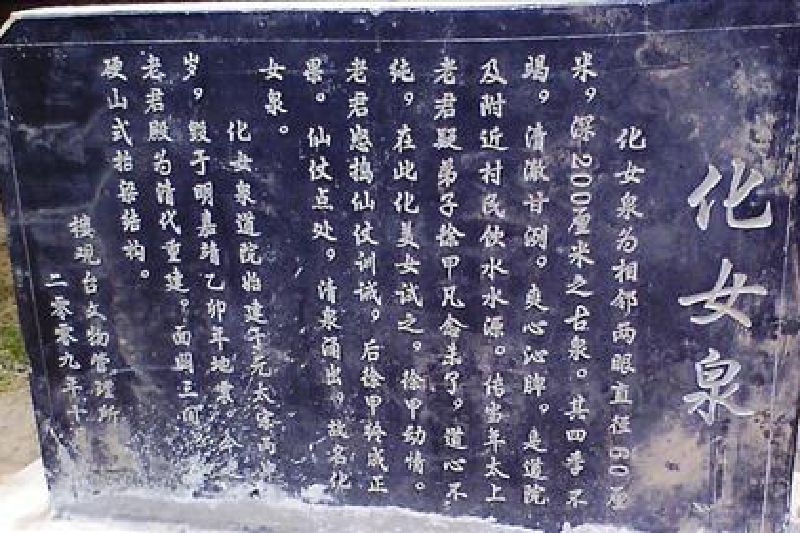 化女泉
化女泉为相邻两眼直径60厘
米，深200厘米之古泉。其四季不
竭，清澈甘冽。爽心沁脾。是道院
及附近村民饮水水源。传当年太上
老君疑弟子徐甲凡念未了，道心不
纯，在此化美女试之，徐甲动情。
老君怒捣仙仗训诫，后徐甲终成正
果。仙仗点处，清泉涌出，故名化
女泉。
化女泉道院始建于元太宗丙申
岁，毁于明嘉靖乙卯年地震。今
老君殿为清代重建。面阔三间
硬山式抬梁结构。
楼观台文物管理所
二零零九年十